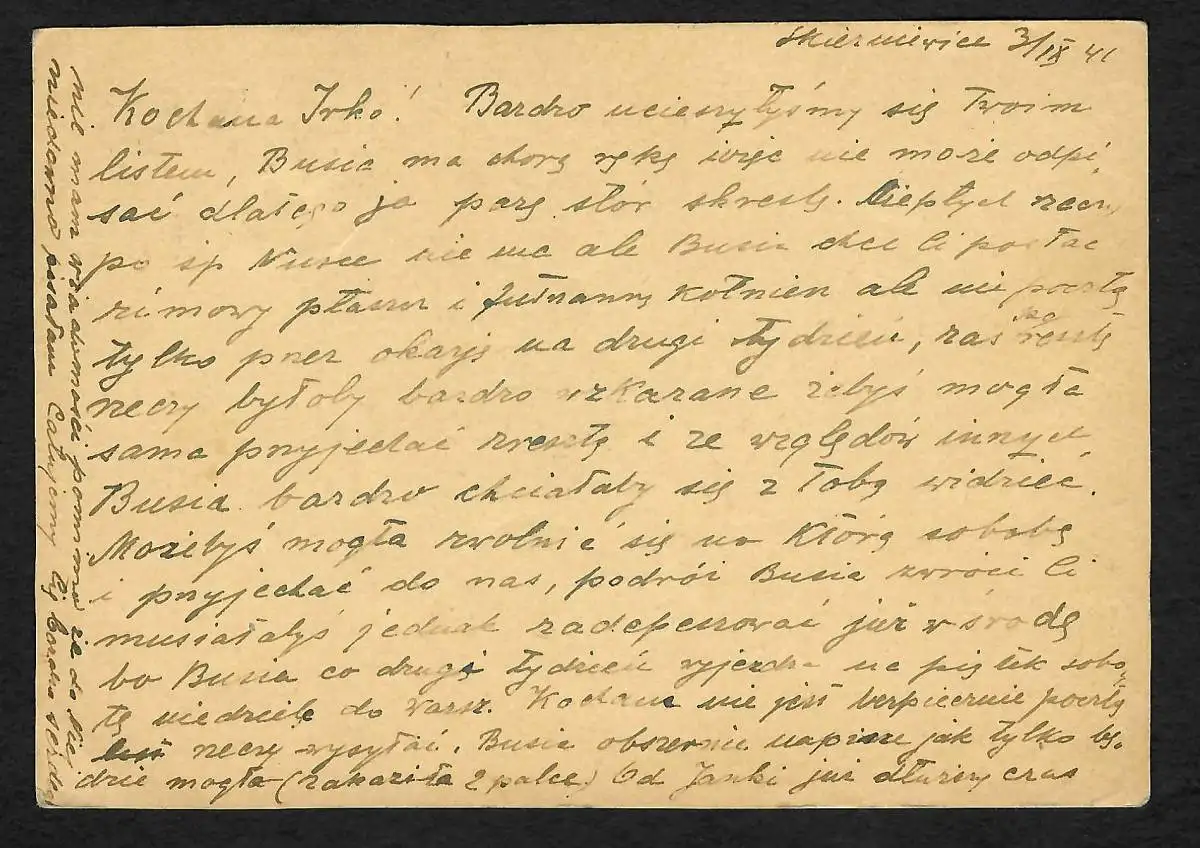 Skierniewice 3/IX 41
Kochana Irko! Bardzo ucieszyłyśmy się Twoim
listem, Busia ma chorą rękę więc nie może odpi,
sać dlatego ja parę słów skreślę. Ciepłych rzeczy
po śp Niusce nie ma ale Busia chce Ci posłać
zimowy płaszcz i futrzanny kołnierz ale nie pocztą
tylko przez okazję na drugi tydzień, zaś po resztę
rzeczy byłoby bardzo wzkazane żebyś mogła
sama przyjechać zresztą i ze względów innych
Busia bardzo chciałaby się z Tobą widzieć.
Możebyś mogła zwolnić się na którą sobobę
i przyjechać do nas, podróż Busia zwróci Ci
musiałabyś jednak zadepeszować już w środę
bo Busia co drugi tydzień wyjeżdża na piątek sobo,
tę niedzielę do Warsz. Kochana nie jest bezpiecznie pocztą
rzeczy wysyłać. Busia obszernie napisze jak tylko bę-
dzie mogła (zakaziła 2 palce) Od Janki już dłuższy czas
nie mam wiadomości pomimo że do niej
niedawno pisałam Całujemy Cię bardzo serdecz